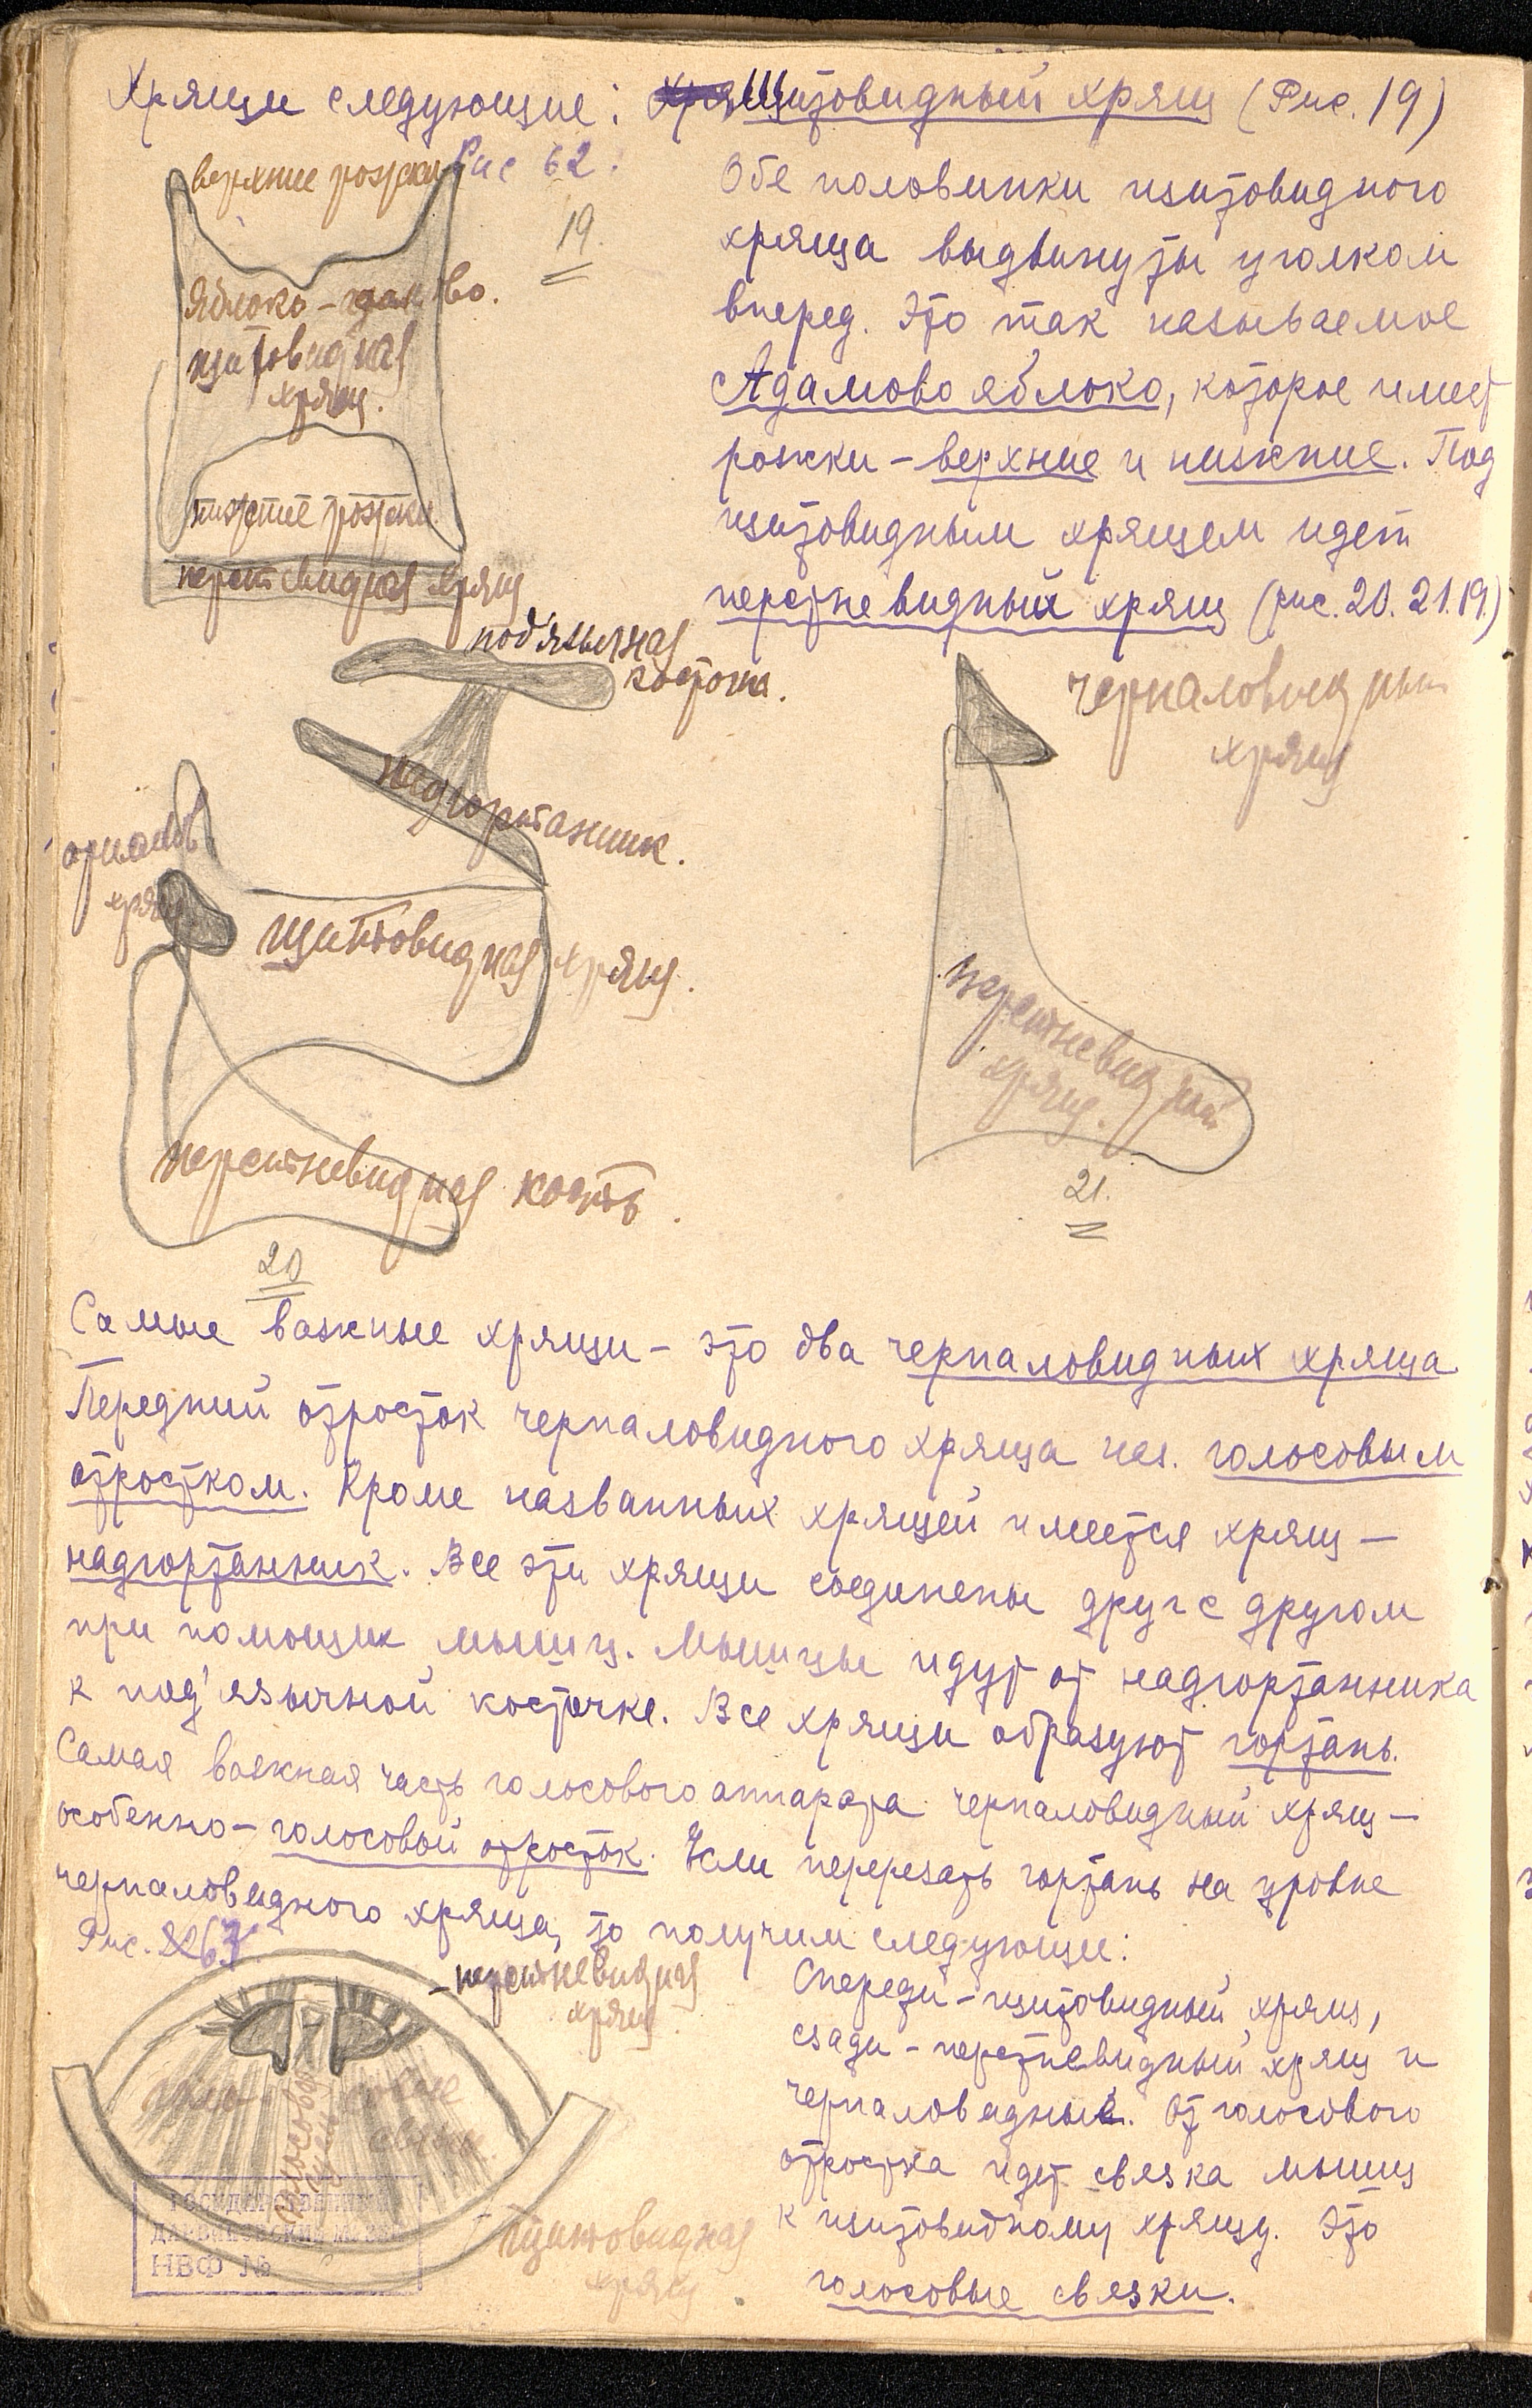 Хрящи следующие: Щитовидный хрящ (Рис. 19)
верхние рожки Рис 62.
19.
Яблоко-адамово.
щитовидная
хрящ.
нижние рожки
перстневидная хрящ
Обе половинки щитовидного
хряща выдвинуты уголком
вперед. Это так называемое
Адамово яблоко, которое имеет
рожки - верхние и нижние. Под
щитовидным хрящем идет
перстневидный хрящ (рис. 20. 21. 19.)
под'язычная
косточка.
надгортанник.
хрящ
щитовидная хрящ.
перстневидная кость.
20
черпаловидный
хрящ
перстневидный
хрящ.
21.
Самые важные хрящи - это два черпаловидных хряща.
Передний отросток черпаловидного хряща наз. голосовым
отростком. Кроме названных хрящей имеется хрящ -
надгортанник. Все эти хрящи соединены друг с другом
при помощи мышц. Мышцы идут от надгортанника
к под'язычной косточке. Все хрящи образуют гортань.
Самая важная часть голосового аппарата черпаловидный хрящ -
особенно - голосовой отросток. Если перерезать гортань на уровне
черпаловидного хряща, то получим следующие:
Рис. 63
- перстневидная
хрящ.
голосовые
связки
голосовая
щель
- щитовидная
хрящ
Спереди - щитовидный хрящ,
сзади - перстневидный хрящ и
черпаловидные. От голосового
отростка идет связка мышц
к щитовидному хрящу. Это
голосовые связки.
ГОСУДАРСТВЕННЫЙ
ДАРВИНОВСКИЙ МУЗЕЙ
НВФ №